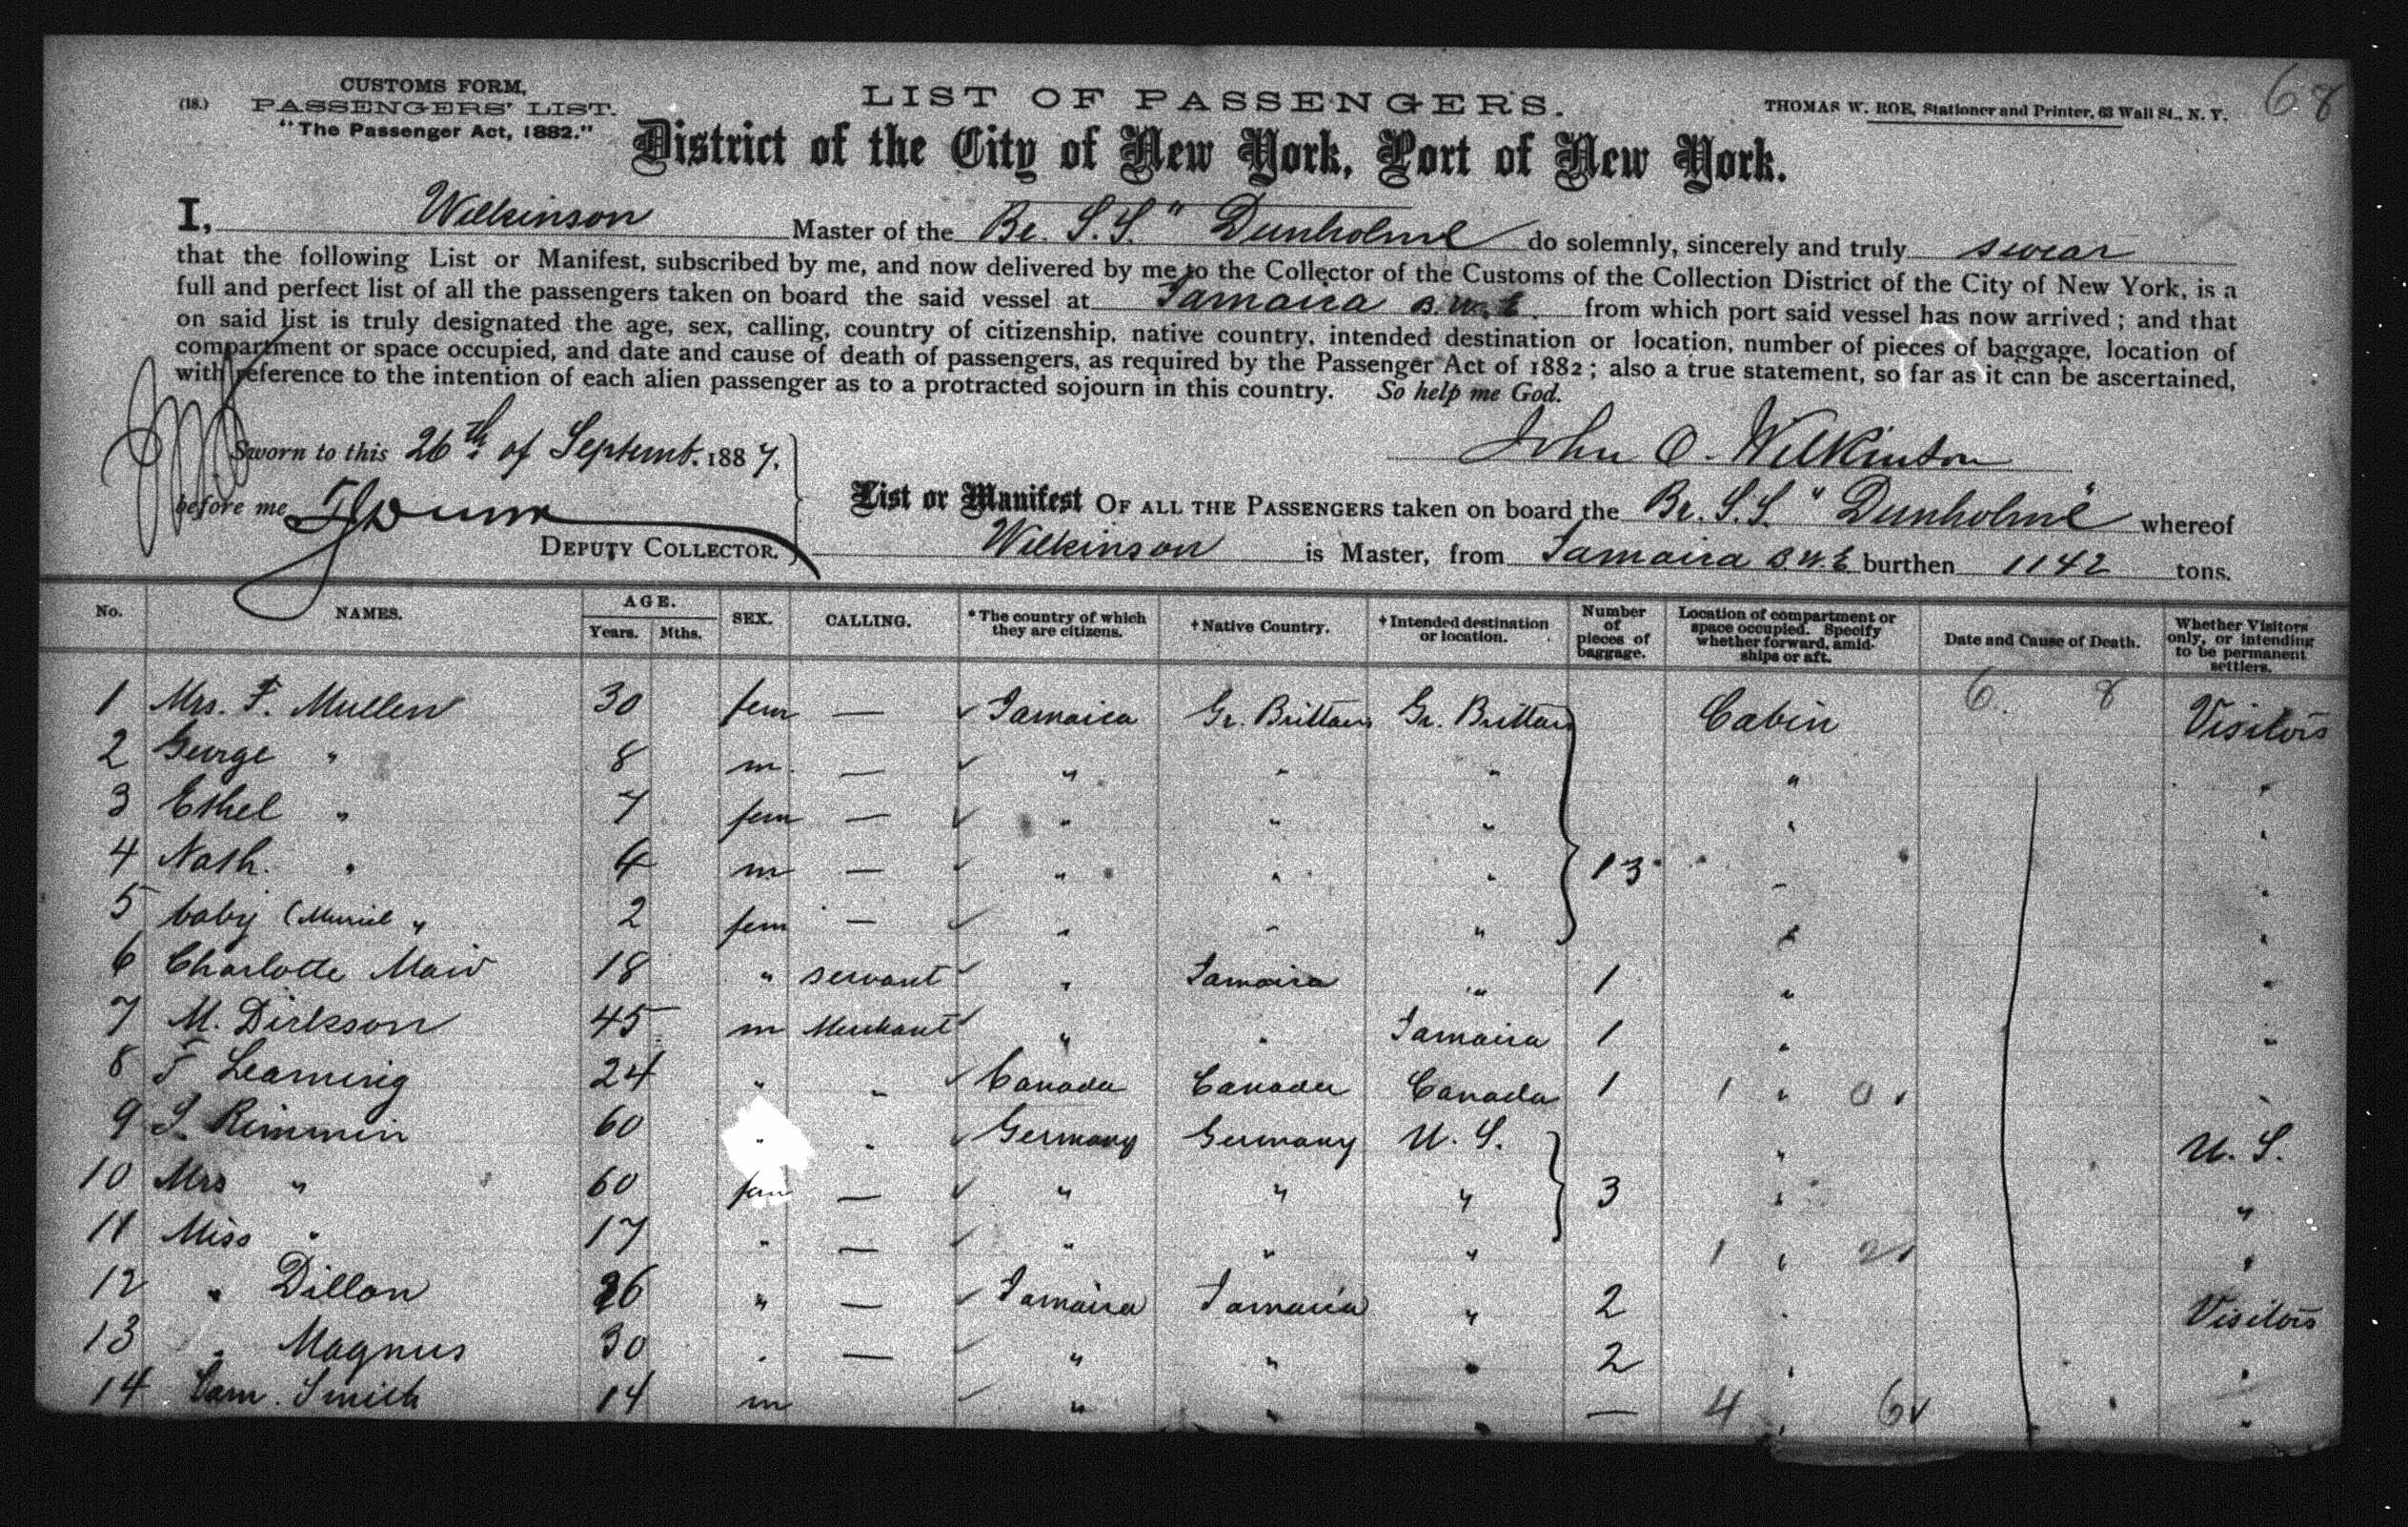 68
CUSTOMS FORM,
(18.) PASSENGERS' LIST.
"The Passenger Act, 1882."
LIST OF PASSENGERS.
THOMAS W. ROE, Stationer and Printer, 63 Wall St., N. Y.
District of the City of New York, Port of New York.
I, Wilkinson Master of the Br. S.S. "Dunholme do solemnly, sincerely and truly swear
that the following List or Manifest, subscribed by me, and now delivered by me to the Collector of the Customs of the Collection District of the City of New York, is a
full and perfect list of all the passengers taken on board the said vessel at Jamaica from which port said vessel has now arrived; and that
on said list is truly designated the age, sex, calling, country of citizenship, native country, intended destination or location, number of pieces of baggage, location of
compartment or space occupied, and date and cause of death of passengers, as required by the Passenger Act of 1882; also a true statement, so far as it can be ascertained,
with reference to the intention of each alien passenger as to a protracted sojourn in this country. So help me God.
Sworn to this 26th of Septemb. 1887.
John O. Wilkinson
before me
DEPUTY COLLECTOR.
List or Manifest OF ALL THE PASSENGERS taken on board the Br. S.S. "Dunholme" whereof
Wilkinson is Master, from Jamaica burthen 1142 tons.
No. NAMES. AGE. Years. Mths. SEX. CALLING. *The country of which they are citizens. †Native Country. †Intended destination or location. Number of pieces of baggage. Location of compartment or space occupied. Specify whether forward, amidships or aft. Date and Cause of Death. Whether Visitors only, or intending to be permanent settlers.
1 Mrs. F. Mullen 30 fem — ✓ Jamaica Gr. Brittain Gr. Brittain Cabin 6. 8 Visitors
2 George " 8 m. — ✓ " " " " "
3 Ethel " 7 fem — ✓ " " " " "
4 Nath. " 4 m — ✓ " " " 13 " "
5 baby (Muriel " 2 fem — ✓ " " " " "
6 Charlotte Mair 18 " servant ✓ " Jamaica " 1 " "
7 M. Dickson 45 m Merchant ✓ " " Jamaica 1 " "
8 F Learning 24 " " ✓ Canada Canada Canada 1 1 " 0 "
9 Rimmin 60 " " ✓ Germany Germany U. S. " U. S.
10 Mrs " 60 fem — ✓ " " " 3 " "
11 Miss " 17 " — ✓ " " " 1 " 2 "
12 " Dillon 26 " — ✓ Jamaica Jamaica " 2 " Visitors
13 " Magnus 30 " — ✓ " " " 2 " "
14 Sam. Smith 14 m ✓ " " " — 4 " 6✓ "